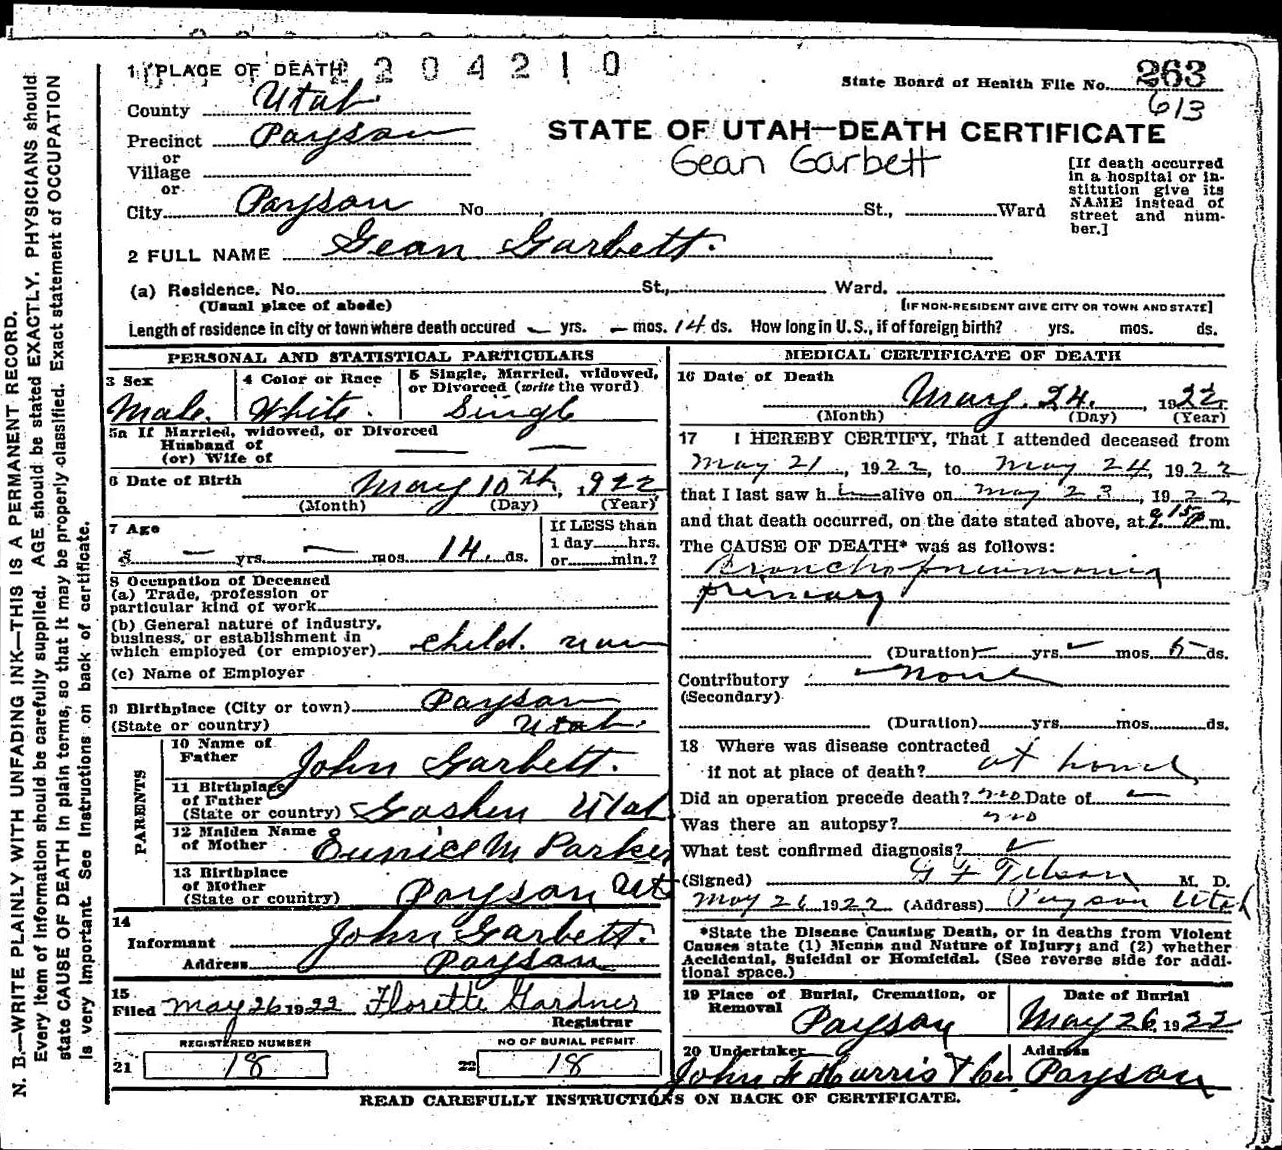 1 PLACE OF DEATH 204210
State Board of Health File No. 263
613
County Utah
Precinct Payson
or
Village
or
City Payson No. St., Ward
STATE OF UTAH—DEATH CERTIFICATE
Gean Garbett
[If death occurred
in a hospital or in-
stitution give its
NAME instead of
street and num-
ber.]
2 FULL NAME Gean Garbett.
(a) Residence. No. St., Ward.
(Usual place of abode) [IF NON-RESIDENT GIVE CITY OR TOWN AND STATE]
Length of residence in city or town where death occured — yrs. — mos. 14 ds. How long in U.S., if of foreign birth? yrs. mos. ds.
PERSONAL AND STATISTICAL PARTICULARS
3 Sex
Male.
4 Color or Race
White.
5 Single, Married, widowed,
or Divorced (write the word)
Single
5a If Married, widowed, or Divorced
Husband of
(or) Wife of — —
6 Date of Birth May 10th, 1922
(Month) (Day) (Year)
7 Age
— yrs. — mos. 14. ds.
If LESS than
1 day hrs.
or min.?
8 Occupation of Deceased
(a) Trade, profession or
particular kind of work
(b) General nature of industry,
business, or establishment in
which employed (or employer) child.
(c) Name of Employer
9 Birthplace (City or town) Payson
(State or country) Utah.
PARENTS
10 Name of
Father John Garbett.
11 Birthplace
of Father
(State or country) Goshen Utah
12 Maiden Name
of Mother Eunice M Parker
13 Birthplace
of Mother
(State or country) Payson Ut
14
Informant John Garbett.
Address Payson
15
Filed May 26 1922 Florette Gardner
Registrar
REGISTERED NUMBER
21 18
NO OF BURIAL PERMIT
22 18
MEDICAL CERTIFICATE OF DEATH
16 Date of Death
May. 24. , 1922.
(Month) (Day) (Year)
17 I HEREBY CERTIFY, That I attended deceased from
May 21, 1922, to May 24, 1922
that I last saw h alive on May 23, 1922
and that death occurred, on the date stated above, at 9 15 P m.
The CAUSE OF DEATH* was as follows:
Broncho pneumonia
primary
(Duration) — yrs. mos. 5 ds.
Contributory None
(Secondary)
(Duration) yrs. mos. ds.
18 Where was disease contracted
if not at place of death? at home
Did an operation precede death? no Date of —
Was there an autopsy? no
What test confirmed diagnosis? ✓
(Signed) G F Tilson M. D.
May 26 1922 (Address) Payson Utah
*State the Disease Causing Death, or in deaths from Violent
Causes state (1) Means and Nature of Injury; and (2) whether
Accidental, Suicidal or Homicidal. (See reverse side for addi-
tional space.)
19 Place of Burial, Cremation, or
Removal Payson
Date of Burial
May 26 1922
20 Undertaker
John H Harris & Co
Address
Payson
READ CAREFULLY INSTRUCTIONS ON BACK OF CERTIFICATE.
N. B.—WRITE PLAINLY WITH UNFADING INK—THIS IS A PERMANENT RECORD.
Every item of information should be carefully supplied. AGE should be stated EXACTLY. PHYSICIANS should
state CAUSE OF DEATH in plain terms, so that it may be properly classified. Exact statement of OCCUPATION
is very important. See instructions on back of certificate.